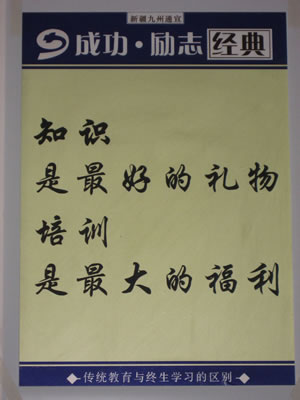 新疆九州通宣
成功·励志 经典
知识
是最好的礼物
培训
是最大的福利
传统教育与终生学习的区别